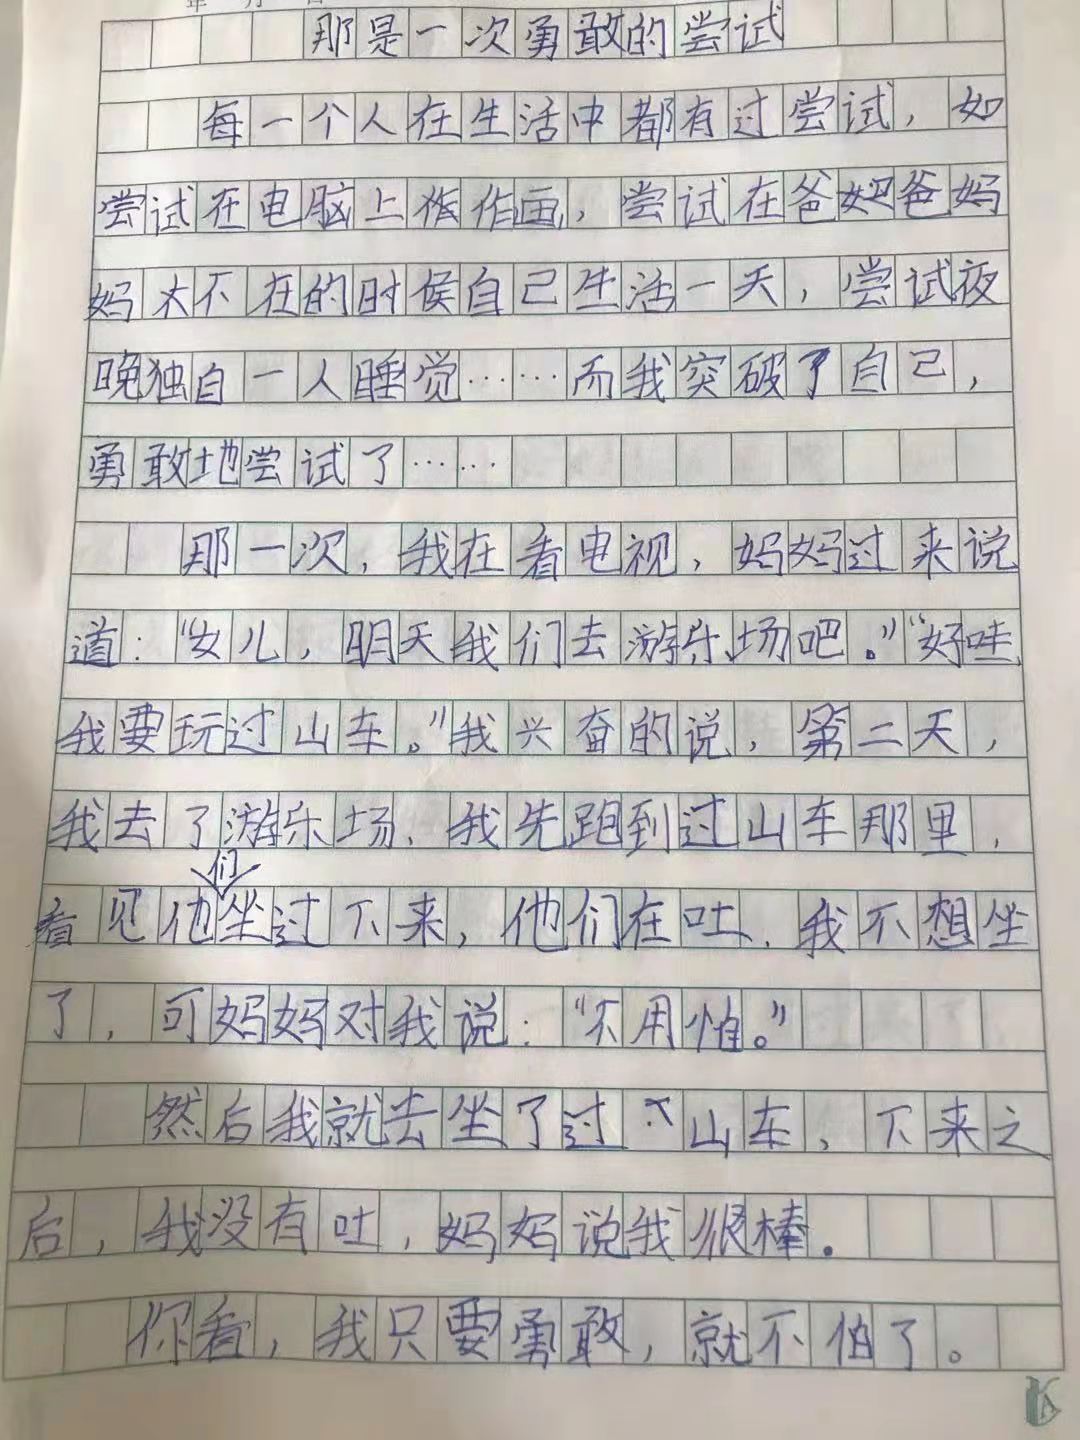 那是一次勇敢的尝试
每一个人在生活中都有过尝试，如
尝试在电脑上作作画，尝试在爸妈爸妈
妈大不在的时候自己生活一天，尝试夜
晚独自一人睡觉……而我突破了自己，
勇敢地尝试了……
那一次，我在看电视，妈妈过来说
道：“女儿，明天我们去游乐场吧。”“好哇
我要玩过山车。”我兴奋的说，第二天，
我去了游乐场，我先跑到过山车那里，
看见他们坐过下来，他们在吐，我不想坐
了，可妈妈对我说：“不用怕。”
然后我就去坐了过山车，下来之
后，我没有吐，妈妈说我很棒。
你看，我只要勇敢，就不怕了。